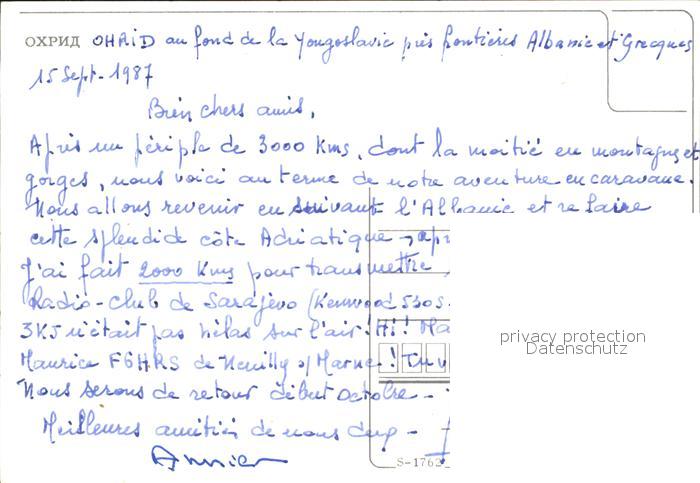 ОХРИД OHRID au fond de la Yougoslavie près frontières Albanie et Grecques
15 Sept - 1987
Bien chers amis,
Après un périple de 3000 Kms, dont la moitié en montagnes et
gorges, nous voici au terme de notre aventure en caravane.
Nous allons revenir en suivant l'Albanie et re faire
cette splendide côte Adriatique
J'ai fait 2000 Kms pour transmettre
Radio-club de Sarajevo (Kenwood 530S.
n'était pas hélas sur l'air! Hi!
privacy protection
Datenschutz
Maurice F6HRS de Neuilly s/Marne!
Nous serons de retour début octobre -
Meilleures amitiés de nous deux -
S-1762